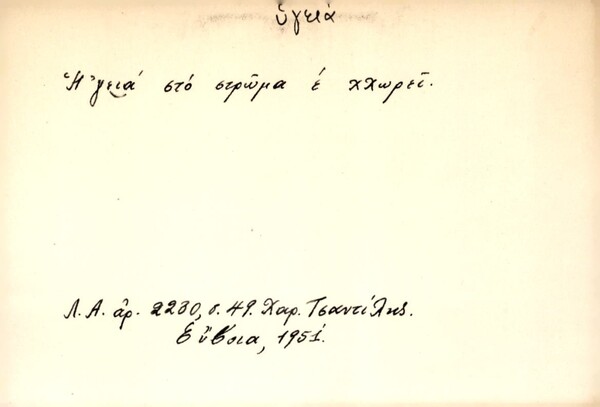 ὑγειά
Ἡ 'γειά στό στρῶμα ἐ χχωρεῖ.
Λ.Α. ἀρ. 2230, σ. 49. Χαρ. Τσαντίλης.
Εὔβοια, 1951.